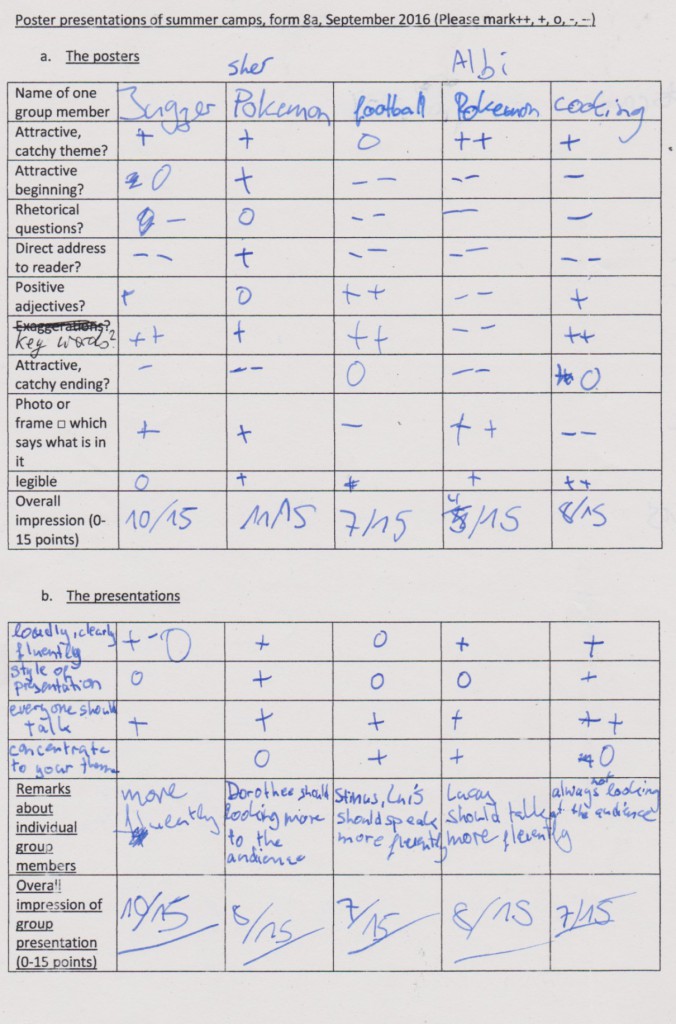 Poster presentations of summer camps, form 8a, September 2016 (Please mark++, +, o, -, --)
a. The posters
sher Albi
Name of one group member Jugger Pokemon football Pokemon cooking
Attractive, catchy theme? + + O ++ +
Attractive beginning? O + -- -- -
Rhetorical questions? - O -- - -
Direct address to reader? -- + -- -- --
Positive adjectives? + O ++ -- +
Exaggerations?
key words? ++ + ++ -- ++
Attractive, catchy ending? - -- O -- O
Photo or frame □ which says what is in it + + - ++ --
legible O + + + ++
Overall impression (0-15 points) 10/15 11/15 7/15 /15 8/15
b. The presentations
loudly, clearly fluently +-O + O + +
style of presentation O + O O +
everyone should talk + + + + ++
concentrate to your theme O + + O
Remarks about individual group members more fluently Dorothee should looking more to the audience should speak more fluently should talk more fluently always not looking at the audience
Overall impression of group presentation (0-15 points) 10/15 8/15 7/15 8/15 7/15